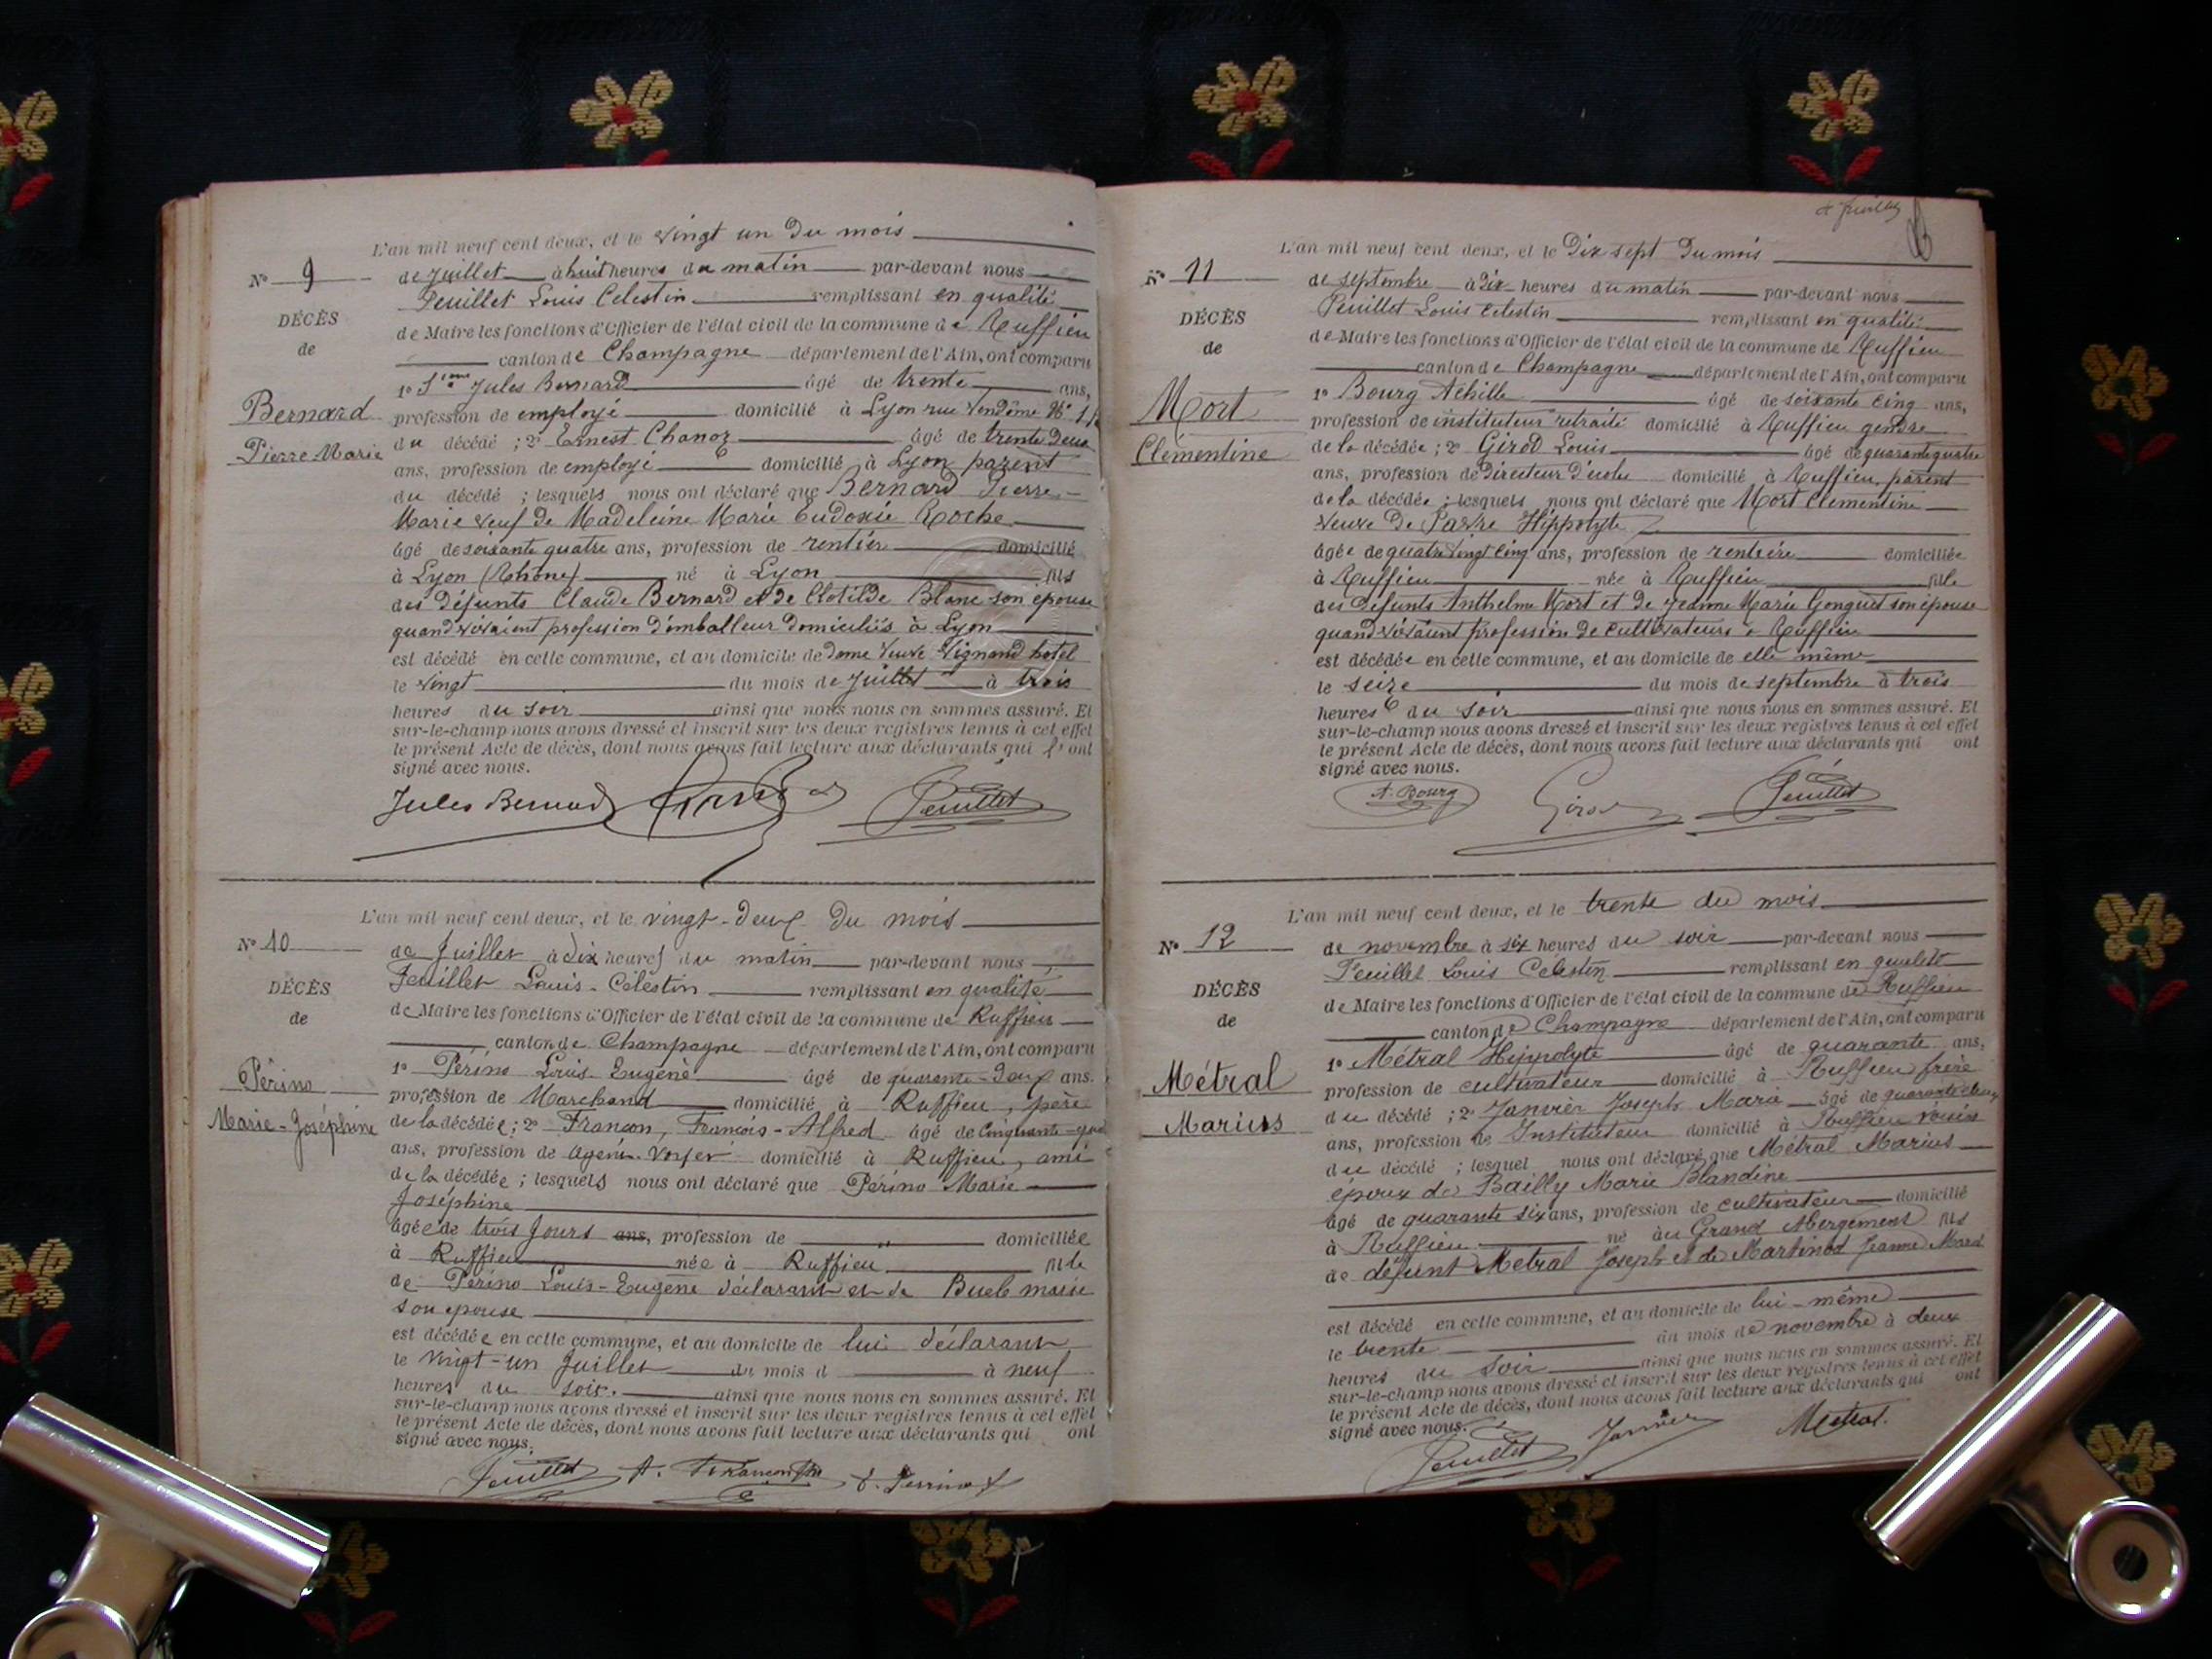 L'an mil neuf cent deux, et le vingt un du mois
N° 9
de juillet à huit heures du matin par-devant nous
Peuillet Louis Celestin remplissant en qualité
DÉCÈS
de Maire les fonctions d'Officier de l'état civil de la commune de Ruffieu
de
canton de Champagne département de l'Ain, ont comparu
1° Jules Bernard âgé de trente ans,
Bernard
profession de employé domicilié à Lyon rue Vendôme N°
Pierre Marie
du décédé ; 2° Ernest Chanoz âgé de trente deux
ans, profession de employé domicilié à Lyon parent
du décédé ; lesquels nous ont déclaré que Bernard Pierre
Marie veuf de Madeleine Marie Eudoxie Roche
âgé de soixante quatre ans, profession de rentier domicilié
à Lyon (Rhône) né à Lyon fils
des défunts Claude Bernard et de Clotilde Blanc son épouse
quand vivaient profession d'emballeur domiciliés à Lyon
est décédé en cette commune, et au domicile de dame veuve Vignand hotel
le vingt du mois de juillet à trois
heures du soir ainsi que nous nous en sommes assuré. Et
sur-le-champ nous avons dressé et inscrit sur les deux registres tenus à cet effet
le présent Acte de décès, dont nous avons fait lecture aux déclarants qui l'ont
signé avec nous.
Jules Bernard Peuillet
L'an mil neuf cent deux, et le vingt-deux du mois
N° 10
de Juillet à dix heures du matin par-devant nous
Peuillet Louis-Célestin remplissant en qualité
DÉCÈS
de Maire les fonctions d'Officier de l'état civil de la commune de Ruffieu
de
canton de Champagne département de l'Ain, ont comparu
Périno
1° Périno Louis-Eugène âgé de quarante-deux ans.
profession de Marchand domicilié à Ruffieu, père
Marie-Joséphine
de la décédée; 2° Françon, François-Alfred âgé de Cinquante-
ans, profession de agent-voyer domicilié à Ruffieu, ami
de la décédée ; lesquels nous ont déclaré que Périno Marie
Joséphine
âgée de trois jours ans, profession de " domiciliée
à Ruffieu née à Ruffieu fille
de Périno Louis-Eugène déclarant et de Bueb marie
son épouse
est décédée en cette commune, et au domicile de lui déclarant
le vingt-un Juillet du mois d à neuf
heures du soir. ainsi que nous nous en sommes assuré. Et
sur-le-champ nous avons dressé et inscrit sur les deux registres tenus à cet effet
le présent Acte de décès, dont nous avons fait lecture aux déclarants qui ont
signé avec nous.
Peuillet A. Françon
L'an mil neuf cent deux, et le Dix sept du mois
N° 11
de septembre à Dix heures du matin par-devant nous
Peuillet Louis Celestin remplissant en qualité
DÉCÈS
de Maire les fonctions d'Officier de l'état civil de la commune de Ruffieu
de
canton de Champagne département de l'Ain, ont comparu
1° Bourg Achille âgé de soixante cinq ans,
Mort
profession de instituteur retraité domicilié à Ruffieu gendre
Clémentine
de la décédée ; 2° Girod Louis âgé de quarante quatre
ans, profession de Directeur d'école domicilié à Ruffieu, parent
de la décédée ; lesquels nous ont déclaré que Mort Clementine
veuve de Pavre Hippolyte
âgée de quatre vingt cinq ans, profession de rentière domiciliée
à Ruffieu née à Ruffieu fille
des défunts Anthelme Mort et de Jeanne Marie Gonguet son épouse
quand vivaient profession de cultivateurs à Ruffieu
est décédée en cette commune, et au domicile de elle même
le seize du mois de septembre à trois
heures du soir ainsi que nous nous en sommes assuré. Et
sur-le-champ nous avons dressé et inscrit sur les deux registres tenus à cet effet
le présent Acte de décès, dont nous avons fait lecture aux déclarants qui ont
signé avec nous.
A. Bourg Girod Peuillet
L'an mil neuf cent deux, et le trente du mois
N° 12
de novembre à six heures du soir par-devant nous
Peuillet Louis Celestin remplissant en qualité
DÉCÈS
de Maire les fonctions d'Officier de l'état civil de la commune de Ruffieu
de
canton de Champagne département de l'Ain, ont comparu
1° Métral Hippolyte âgé de quarante ans,
Métral
profession de cultivateur domicilié à Ruffieu frère
Marius
du décédé ; 2° Janvier Joseph Marie âgé de quarante deux
ans, profession de Instituteur domicilié à Ruffieu voisin
du décédé ; lesquel nous ont déclaré que Métral Marius
époux de Bailly Marie Blandine
âgé de quarante six ans, profession de cultivateur domicilié
à Ruffieu né au Grand Abergement fils
de défunt Metral Joseph et de Martinod Jeanne Marie
est décédé en cette commune, et au domicile de lui-même
le trente du mois de novembre à deux
heures du soir ainsi que nous nous en sommes assuré. Et
sur-le-champ nous avons dressé et inscrit sur les deux registres tenus à cet effet
le présent Acte de décès, dont nous avons fait lecture aux déclarants qui ont
signé avec nous.
Peuillet Janvier Metral.